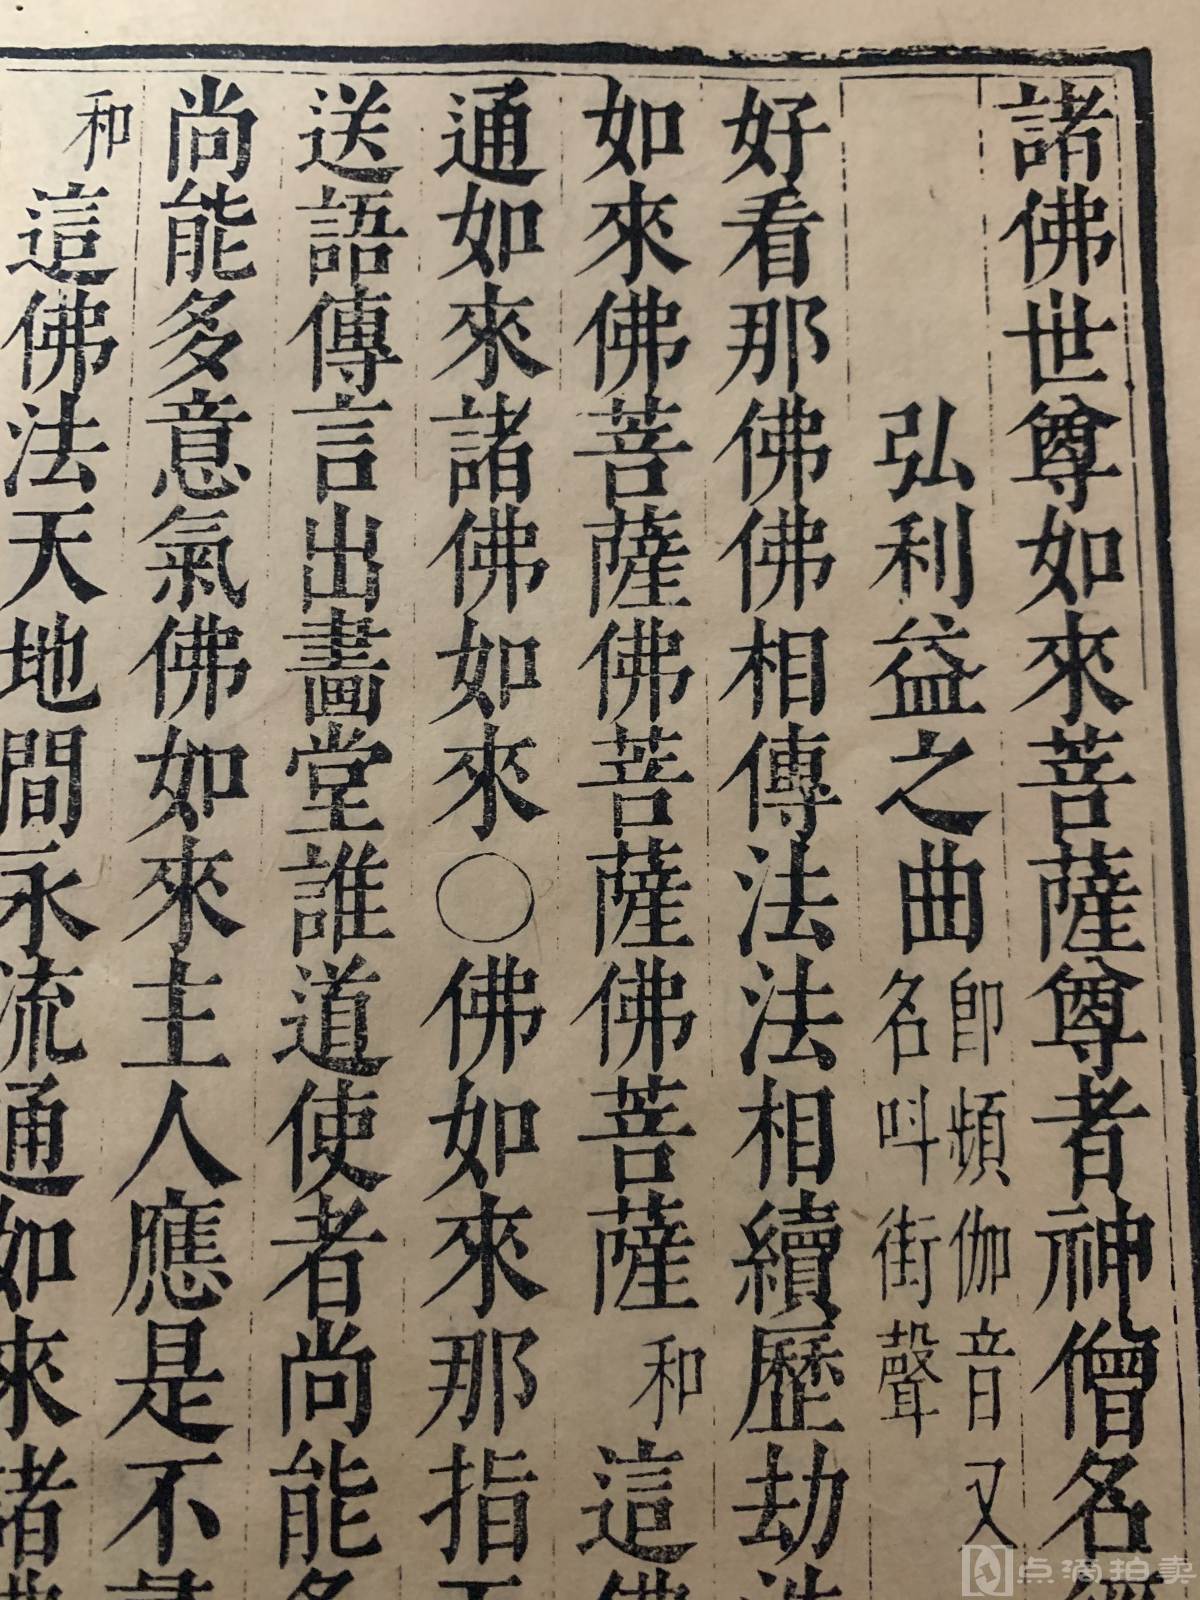 諸佛世尊如來菩薩尊者神僧名經
弘利益之曲 即頻伽音又
名呌街聲
好看那佛佛相傳法法相續歷劫
如來佛菩薩佛菩薩佛菩薩 和 這佛
通如來諸佛如來〇佛如來那指
送語傳言出畫堂誰道使者尚能多
尚能多意氣佛如來主人應是不
和 這佛法天地間永流通如來諸佛
点滴拍卖